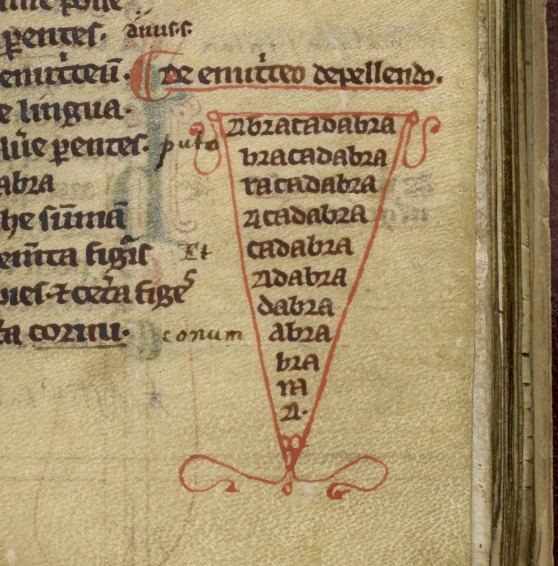 perıtes. anus.s.
emit'teū.
De emit'teo depellendo.
e lingua.
perıtes. puto
abra
he sūmā
Et
cet'a fige
cornu. conum
Abracadabra
bracadabra
racadabra
Acadabra
cadabra
Adabra
dabra
abra
bra
ra
A.